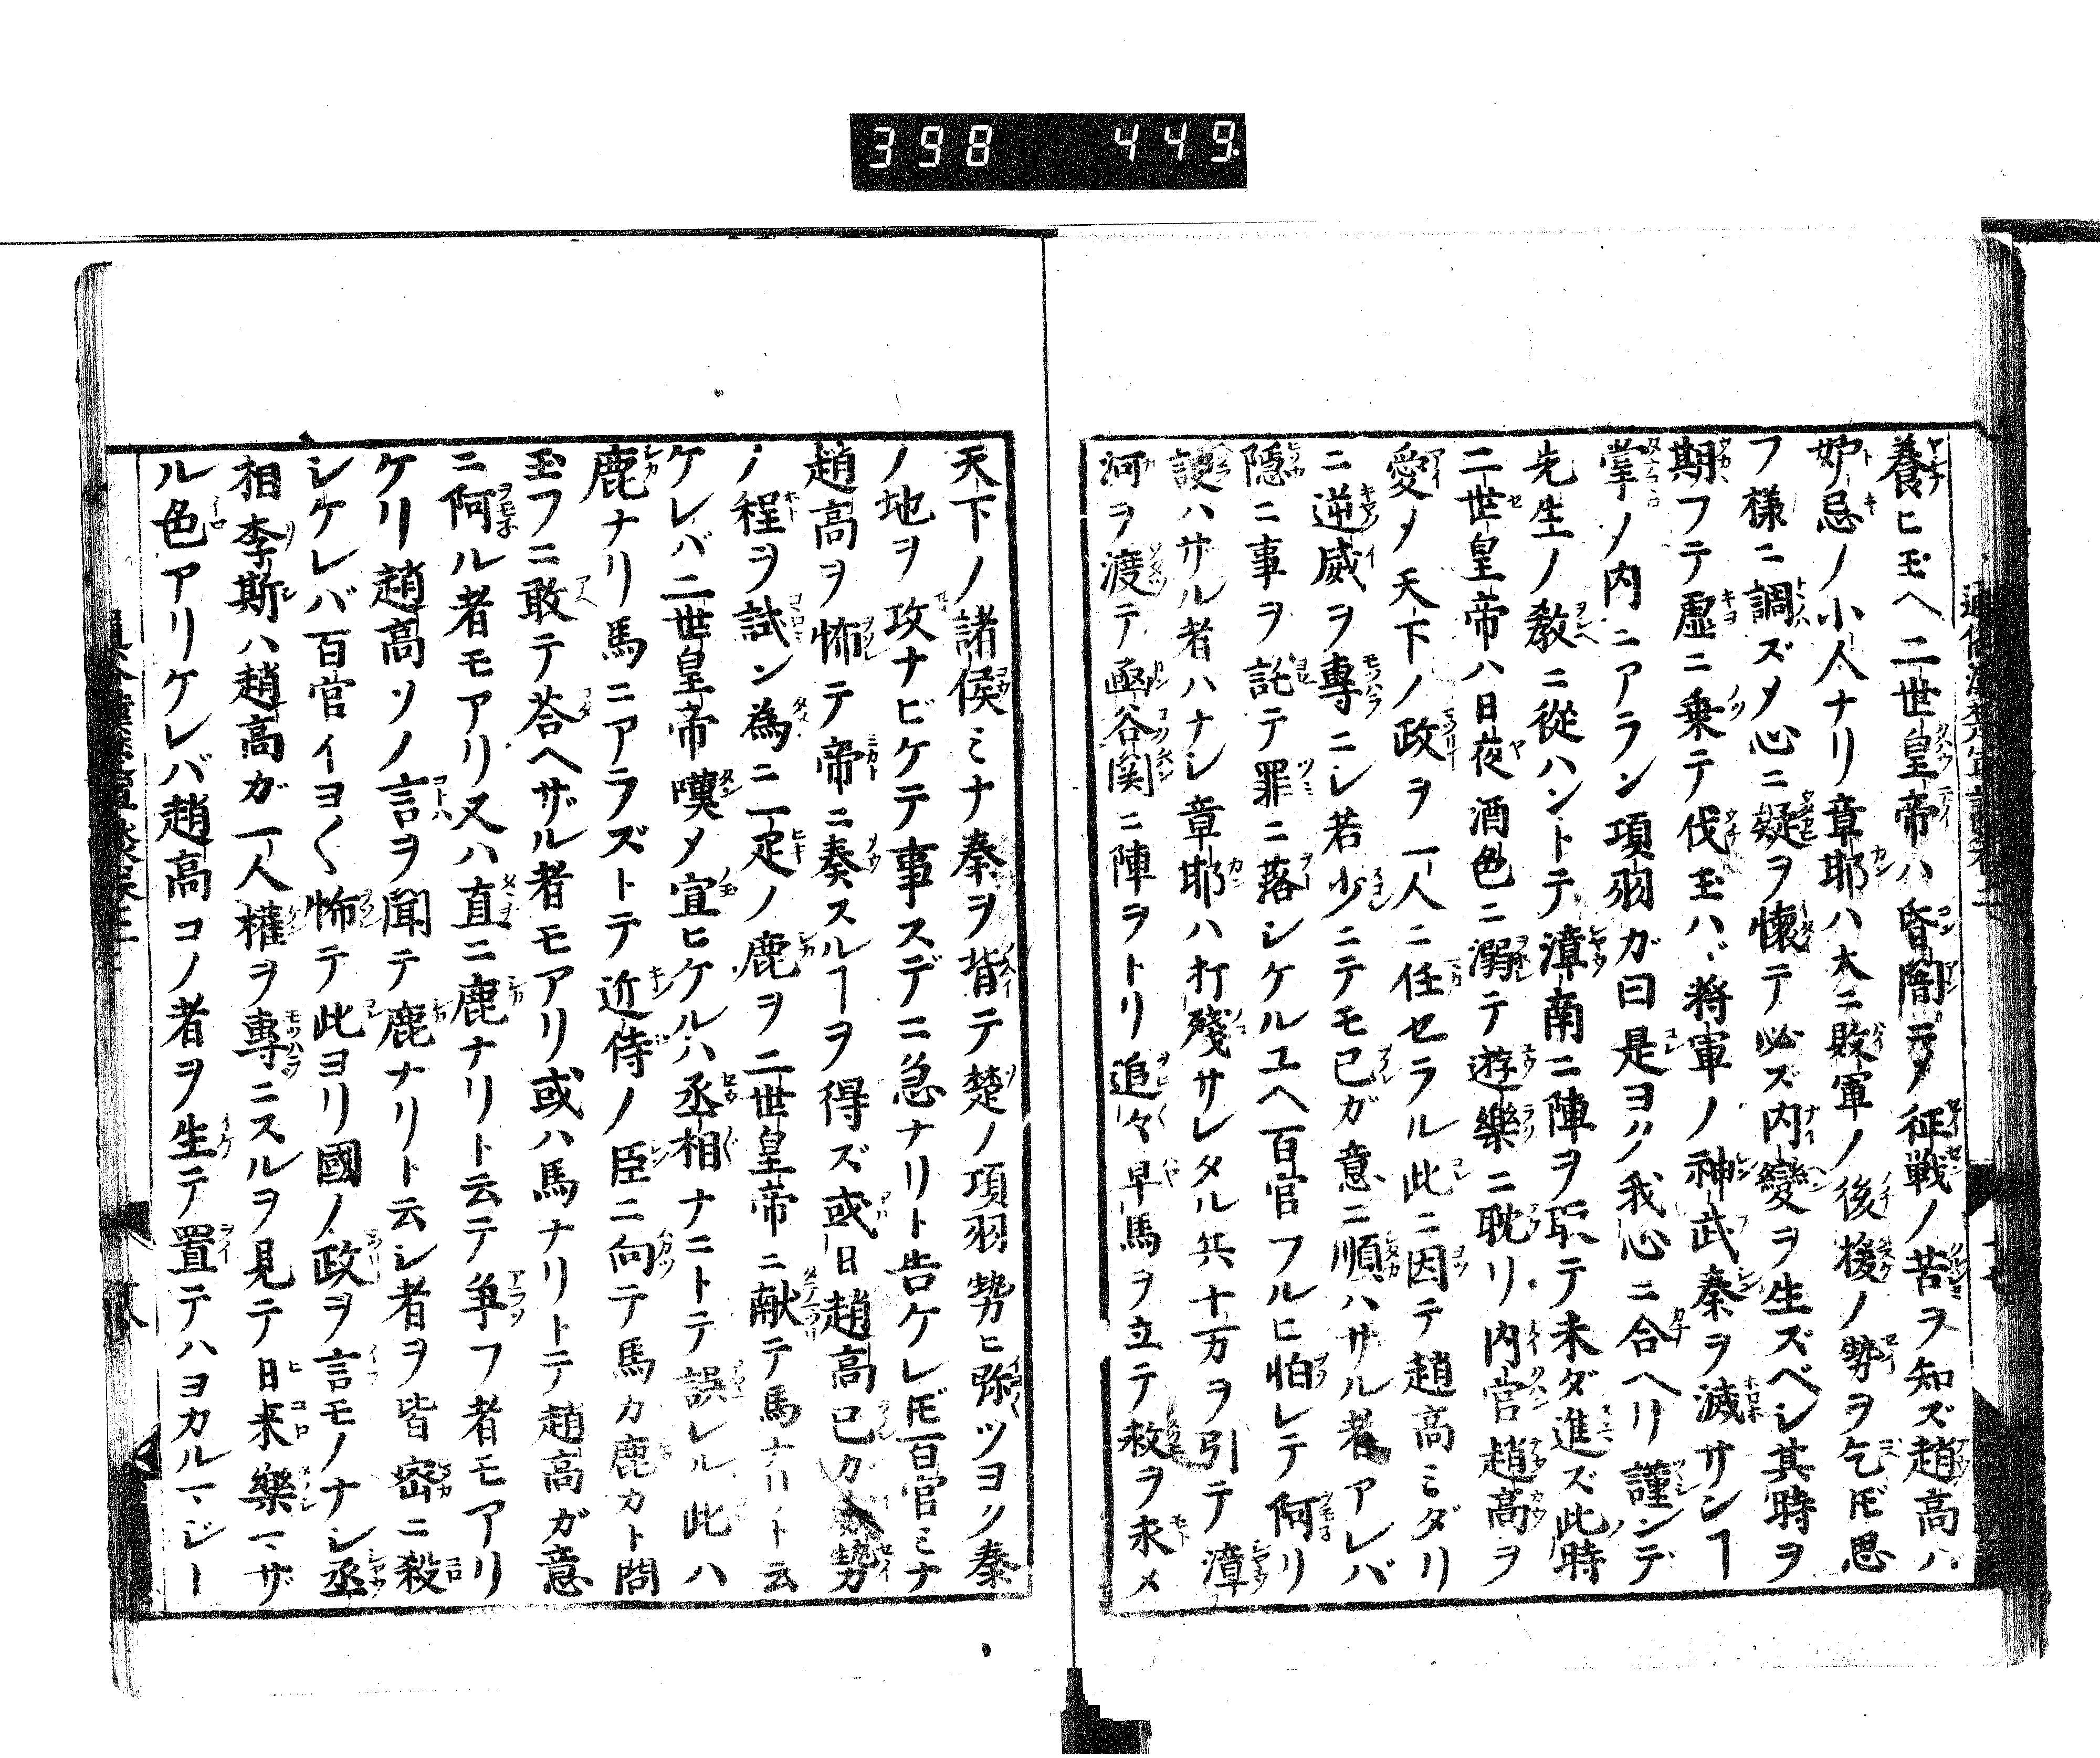 398 449.
養ヒ玉ヘ二世皇帝ハ昏闇ニメ征戦ノ苦ヲ知ズ趙高ハ
妒忌ノ小人ナリ章耶ハ大ニ敗軍ノ後援ノ勢ヲ乞𪜈思
フ様ニ調ズメ心ニ疑ヲ懐テ必ズ内變ヲ生ズベシ其時ヲ
期フテ虚ニ乗テ伐玉ハヾ将軍ノ神武秦ヲ滅サンヿ
掌ノ内ニアラン項羽ガ曰是ヨク我心ニ合ヘリ謹ンデ
先生ノ教ニ從ハントテ漳南ニ陣ヲ取テ未ダ進ズ此時
二世皇帝ハ日夜酒色ニ溺テ遊樂ニ耽リ内官趙高ヲ
愛メ天下ノ政ヲ一人ニ任セラル此ニ因テ趙高ミダリ
ニ逆威ヲ專ニシ若少ニテモ已ガ意ニ順ハサル者アレバ
隠ニ事ヲ託テ罪ニ落シケルユヘ百官フルヒ怕レテ阿リ
諛ハサル者ハナシ章耶ハ打殘サレタル兵十万ヲ引テ漳
河ヲ渡テ凾谷関ニ陣ヲトリ追々早馬ヲ立テ救ヲ求メ
天下ノ諸侯ミナ秦ヲ背テ楚ノ項羽勢ヒ弥ツヨク秦
ノ地ヲ攻ナビケテ事スデニ急ナリト告ケレ𪜈百官ミナ
趙高ヲ怖テ帝ニ奏スルヿヲ得ズ或日趙高已カ勢
ノ程ヲ試ン為ニ一疋ノ鹿ヲ二世皇帝ニ献テ馬ナリト云
ケレバ二世皇帝嘆メ宣ヒケルハ丞相ナニトテ誤レル此ハ
鹿ナリ馬ニアラズトテ近侍ノ臣ニ向テ馬カ鹿カト問
玉フニ敢テ荅ヘザル者モアリ或ハ馬ナリトテ趙高ガ意
ニ阿ル者モアリ又ハ直ニ鹿ナリト云テ争フ者モアリ
ケリ趙高ソノ言ヲ聞テ鹿ナリト云シ者ヲ皆密ニ殺
シケレバ百官イヨ〱怖テ此ヨリ國ノ政ヲ言モノナシ丞
相李斯ハ趙高ガ一人權ヲ專ニスルヲ見テ日来樂マザ
ル色アリケレバ趙高コノ者ヲ生テ置テハヨカルマジー